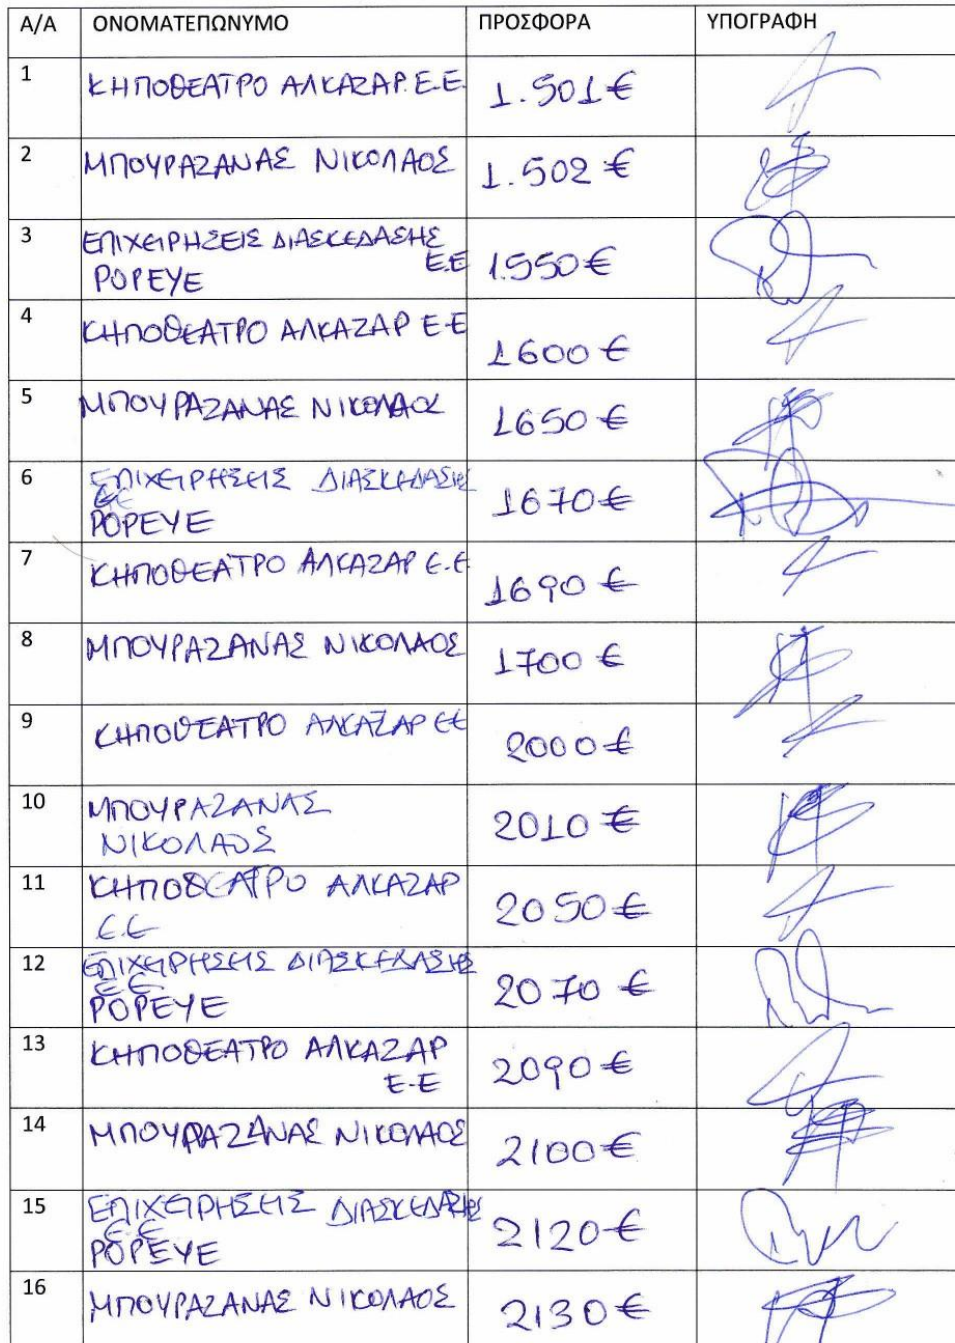 Α/Α ΟΝΟΜΑΤΕΠΩΝΥΜΟ ΠΡΟΣΦΟΡΑ ΥΠΟΓΡΑΦΗ
1 ΚΗΠΟΘΕΑΤΡΟ ΑΛΚΑΖΑΡ. Ε.Ε. 1.501 €
2 ΜΠΟΥΡΑΖΑΝΑΣ ΝΙΚΟΛΑΟΣ 1.502 €
3 ΕΠΙΧΕΙΡΗΣΕΙΣ ΔΙΑΣΚΕΔΑΣΗΣ
Ε.Ε 1.550 €
POPEYE
4 ΚΗΠΟΘΕΑΤΡΟ ΑΛΚΑΖΑΡ Ε.Ε 1600 €
5 ΜΠΟΥΡΑΖΑΝΑΣ ΝΙΚΟΛΑΟΣ 1650 €
6 ΕΠΙΧΕΙΡΗΣΕΙΣ ΔΙΑΣΚΕΔΑΣΗΣ
Ε.Ε 1670 €
POPEYE
7 ΚΗΠΟΘΕΑΤΡΟ ΑΛΚΑΖΑΡ Ε.Ε 1690 €
8 ΜΠΟΥΡΑΖΑΝΑΣ ΝΙΚΟΛΑΟΣ 1700 €
9 ΚΗΠΟΘΕΑΤΡΟ ΑΛΚΑΖΑΡ ΕΕ 2000 €
10 ΜΠΟΥΡΑΖΑΝΑΣ 2010 €
ΝΙΚΟΛΑΟΣ
11 ΚΗΠΟΘΕΑΤΡΟ ΑΛΚΑΖΑΡ 2050 €
Ε.Ε
12 ΕΠΙΧΕΙΡΗΣΕΙΣ ΔΙΑΣΚΕΔΑΣΗΣ
Ε.Ε. 2070 €
POPEYE
13 ΚΗΠΟΘΕΑΤΡΟ ΑΛΚΑΖΑΡ 2090 €
Ε.Ε
14 ΜΠΟΥΡΑΖΑΝΑΣ ΝΙΚΟΛΑΟΣ 2100 €
15 ΕΠΙΧΕΙΡΗΣΕΙΣ ΔΙΑΣΚΕΔΑΣΗΣ
Ε.Ε 2120 €
POPEYE
16 ΜΠΟΥΡΑΖΑΝΑΣ ΝΙΚΟΛΑΟΣ 2130 €